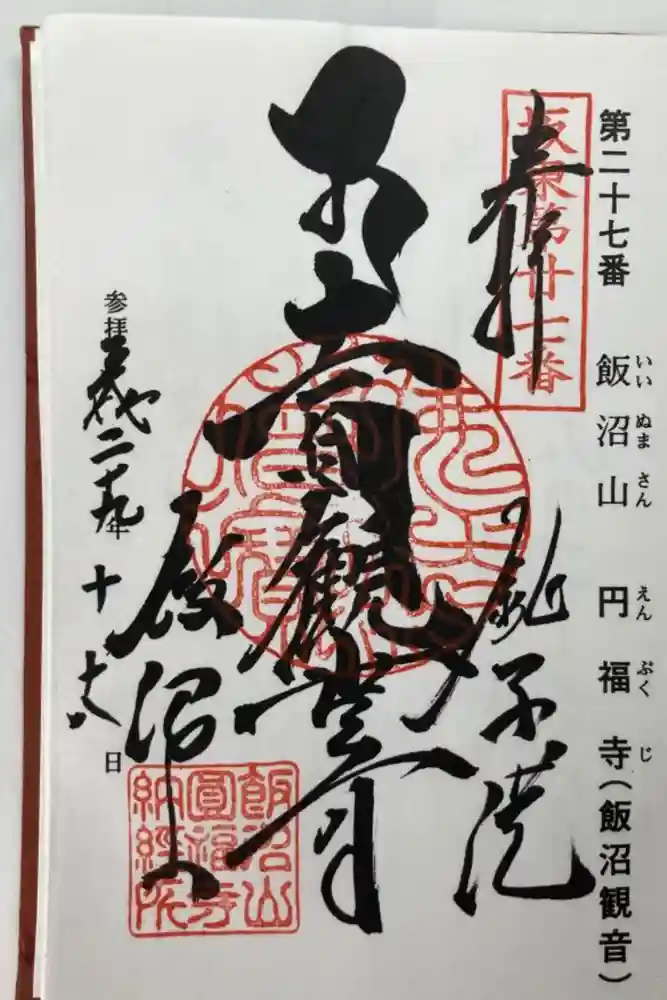 第二十七番 飯沼山 円福寺(飯沼観音)
いいぬまさん えんぷくじ
坂東第廿七番
奉拝
銚子港
觀世音
飯沼山
飯沼山
圓福寺
納経所
参拝 平成二十九年 十 日